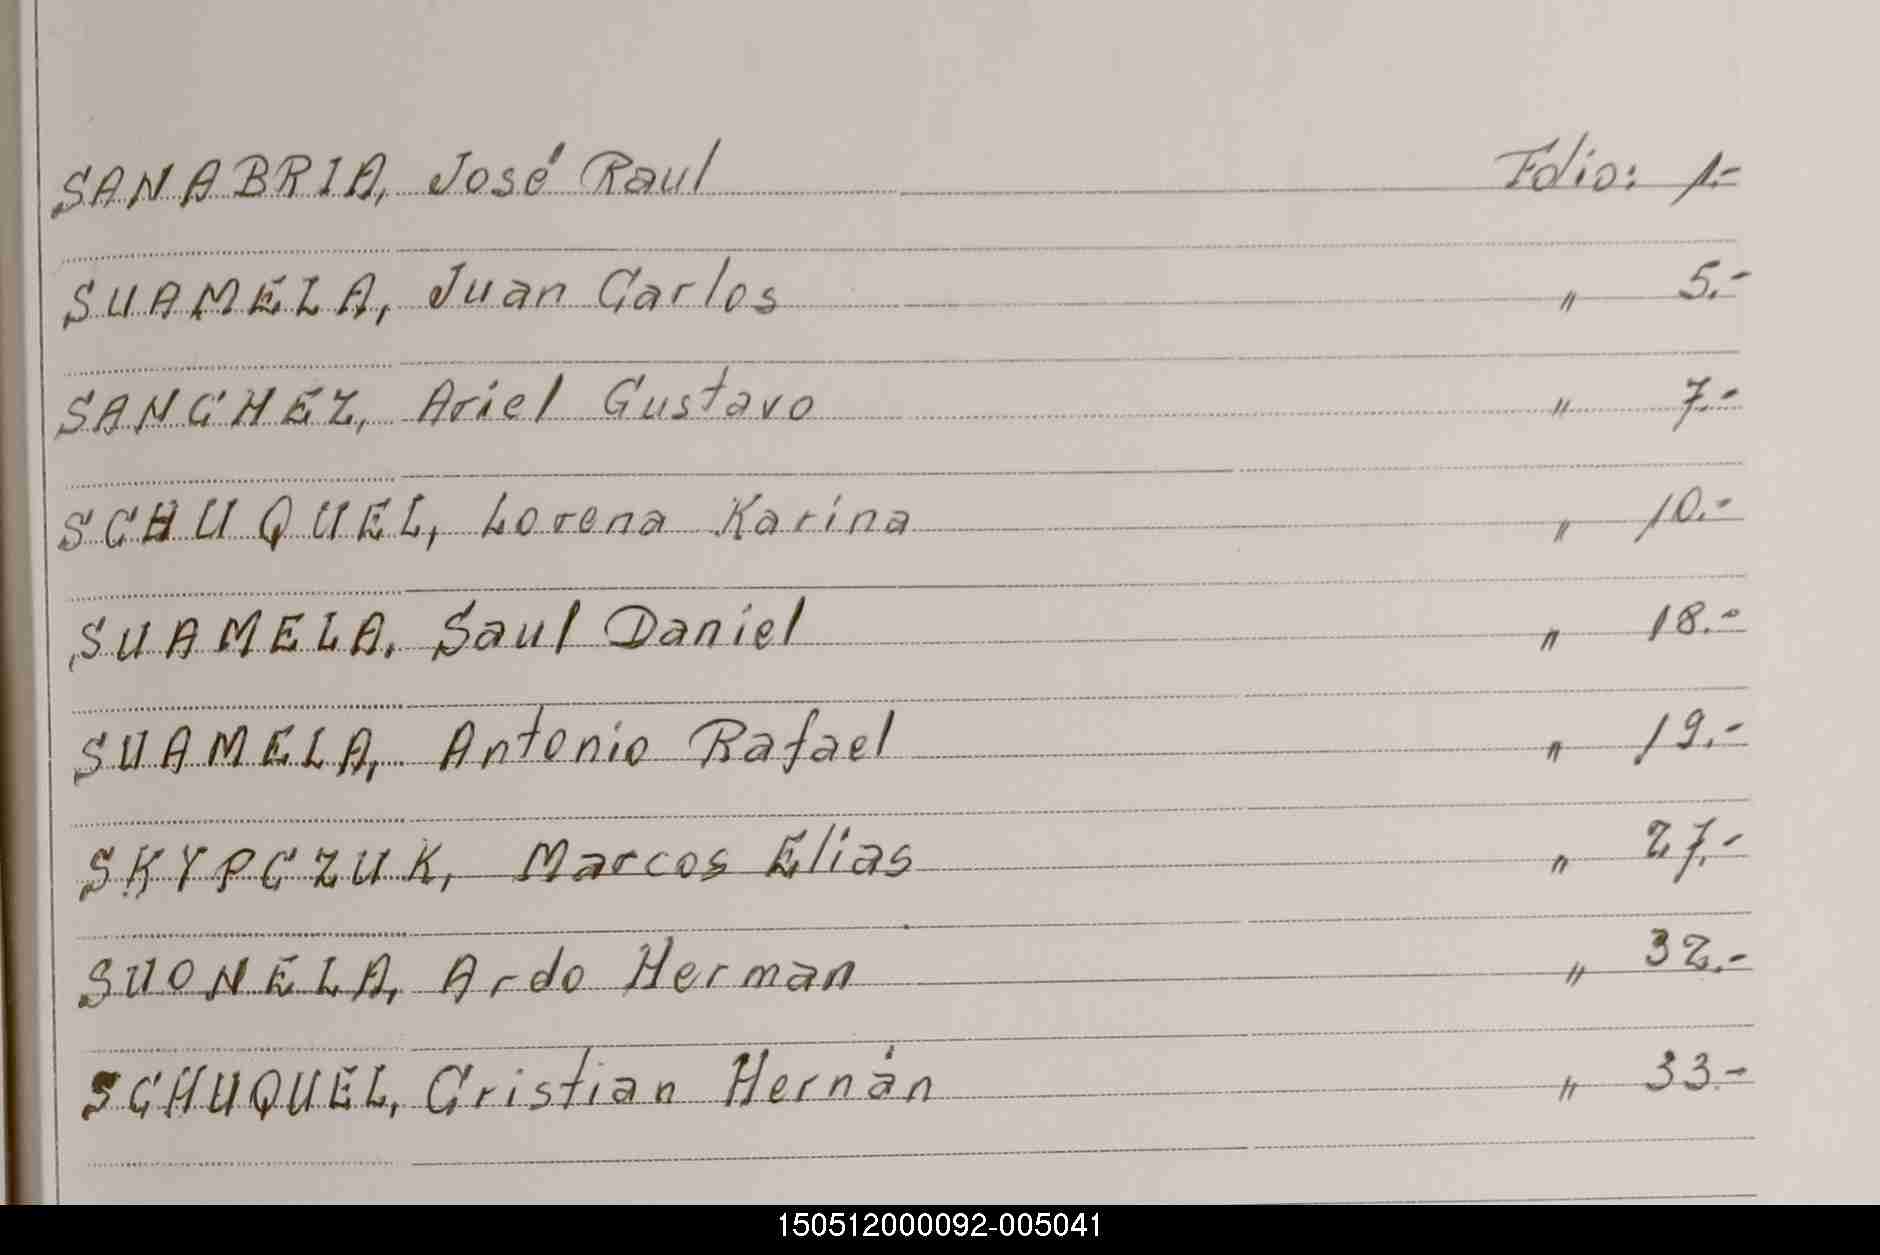 SANABRIA, José Raul Folio: 1.-
SUAMELA, Juan Carlos " 5.-
SANCHEZ, Ariel Gustavo " 7.-
SCHUQUEL, Lorena Karina " 10.-
SUAMELA, Saul Daniel " 18.-
SUAMELA, Antonio Rafael " 19.-
SKYPCZUK, Marcos Elias " 27.-
SUONELA, Ardo Herman " 32.-
SCHUQUEL, Cristian Hernán " 33.-
150512000092-005041